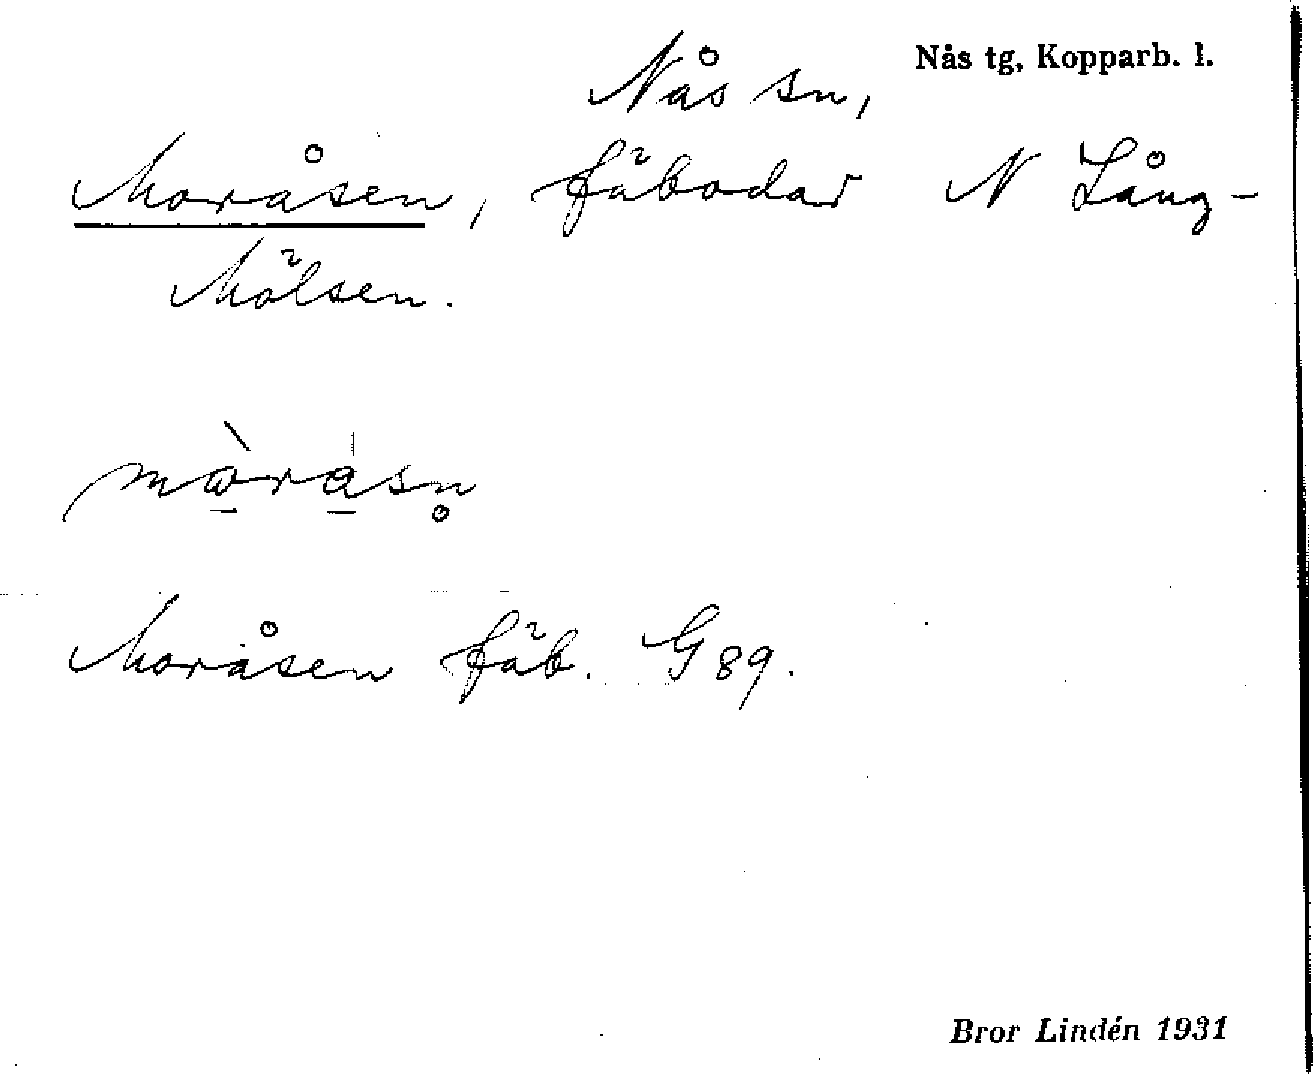 Nås tg, Kopparb. l.
Nås sn,
Moråsen, fäbodar N Lång-
Mölsen.
mòråsn̥
Moråsen fäb. G 89.
Bror Lindén 1931